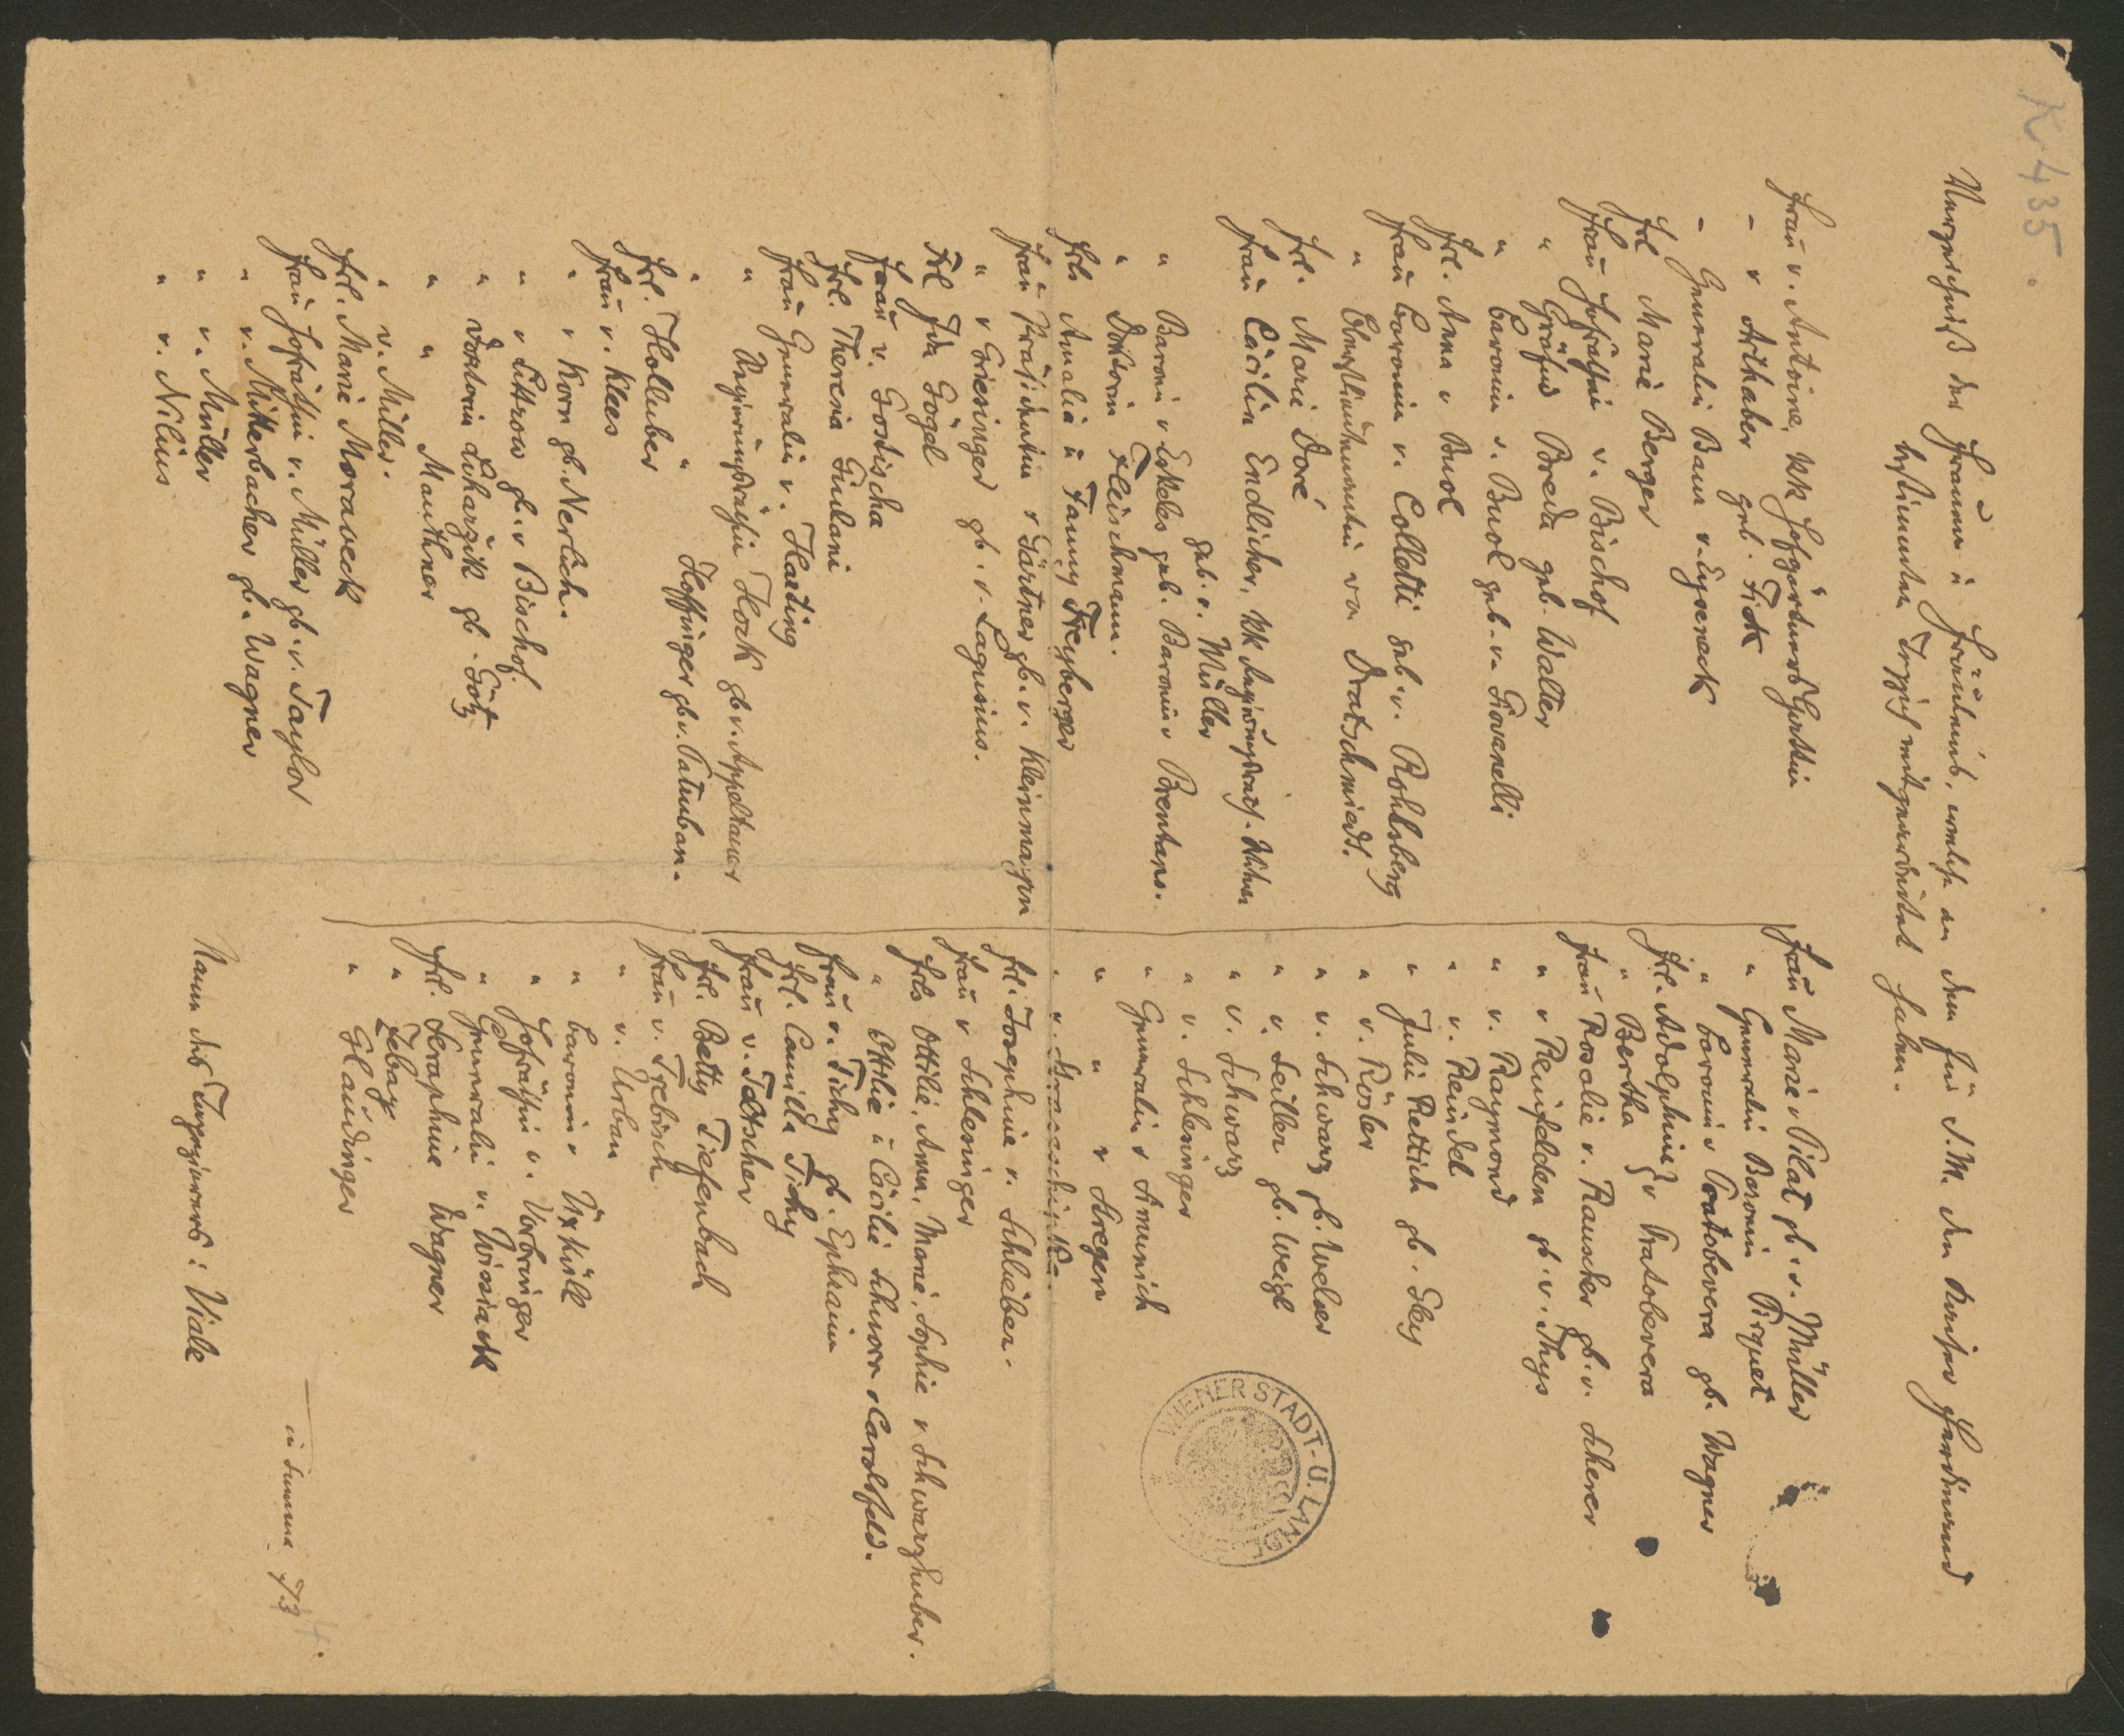 K 435.
Verzeichniß der Frauen u Fräuleins, welche an dem für S. M. den Kaiser Ferdinand
bestimmten Teppich mitgearbeitet haben.
Frau v. Antoine, kk Hofgärtners Gattin
- v Arthaber geb. Fick
- Generalin Baum v. Eyseneck
Frl Marie Berger
Frau Hofräthin v. Bischof
" Gräfin Breda geb. Walter
" baronin v. Buol geb. v. Giovanelli
Frl. Anna v Buol
Frau baronin v. Colletti geb. v. Rohlsberg
" Oberstlieutenantin von Dratschmiedt.
Frl. Marie Doré
Frau Cäcilia Endlicher, kk Regierungsrath-Witwe
geb. v. Müller
" Baronin v Eskeles geb. Baronin v Brentano.
" Doktorin Fleischmann.
Frls Amalia u Fanny Freyberger
Frau Präsidentin v Gärtner gb. v. Kleinmayrn
" v Griesinger gb. v. Lagusius.
Frl Ida Gögel
Frau v. Gostischa
Frl. Theresia Gulani
Frau Generalin v. Hartung
" Regierungsräthin Hock gb v. Appeltauer
" " Hoffinger gb v. Patruban.
Frl. Holluber
Frau v. Klees
" v Korn gb. Nerlich.
" v Littrow gb. v Bischof.
" Doktorin Liharzik gb. Götz
" " Mauthner
" v. Miller.
Frl. Marie Moraweck
Frau Hofräthin v. Müller gb. v. Taylor
" v. Mitterbacher gb. Wagner
" v. Müller
" v. Nilius
Frau Marie v Pilat gb. v. Müller
" Generalin Baronin Pirquet
" baronin v Pratobevera gb. Wagner
Frl. Adolphine } v Pratobevera
" Bertha
Frau Rosalie v. Rauscher gb. v. Scherer
" v Reinfelden gb. v. Thys
" v. Raymond
" v. Reindel
" Julie Rettich gb. Gley
" v. Rösler
" v. Schwarz gb. Welser
" v. Seiller gb. Weigl
" v. Schwarz
" v. Schlesinger
" Generalin v Simunich
" " v Stregen
Frl. Josephine v. Schlieber.
Frau v Schlesinger
Frls Ottilie, Anna, Marie, Sophie v Schwarzhuber.
" Ottilie u Cäcilie Schnorr v Carolsfeld.
Frau v. Tichy gb. Ephraim
Frl. Camilla Tichy
Frau v. Teltscher
Frl. Betty Tiefenbach
Frau v. Trebisch
" v. Urban
" baronin v Üxküll
" Hofräthin v. Vorbringer
" Generalin v. Wissiack
Frl. Seraphine Wagner
" Zebay
" Glaudinger
in Summa 73
74.
Name des Tapezierers: Viale
WIENER STADT- U. LANDESBIBL.